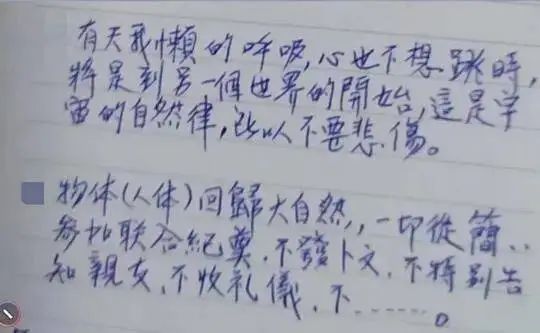 有天我懶的呼吸,心也不想跳時,
將是到另一個世界的開始,這是宇
宙的自然律,所以人不要悲傷。
物体(人体)回歸大自然,,一切從簡..
參加联合紀奠.不發卜文.不特別告
知親友.不收礼儀.不.......。